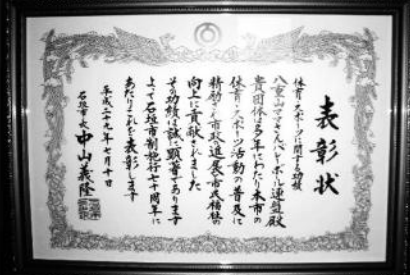 表彰状
体育・スポーツに関する功績
八重山ママさんバレーボール連盟殿
貴団体は多年にわたり本市の
体育・スポーツ活動の普及に
精励され市政の進展と市民福祉の
向上に貢献されました
その功績は誠に顕著であります
よって石垣市制施行七十周年に
あたりこれを表彰します
平成二十九年七月十日
石垣市長 中山義隆